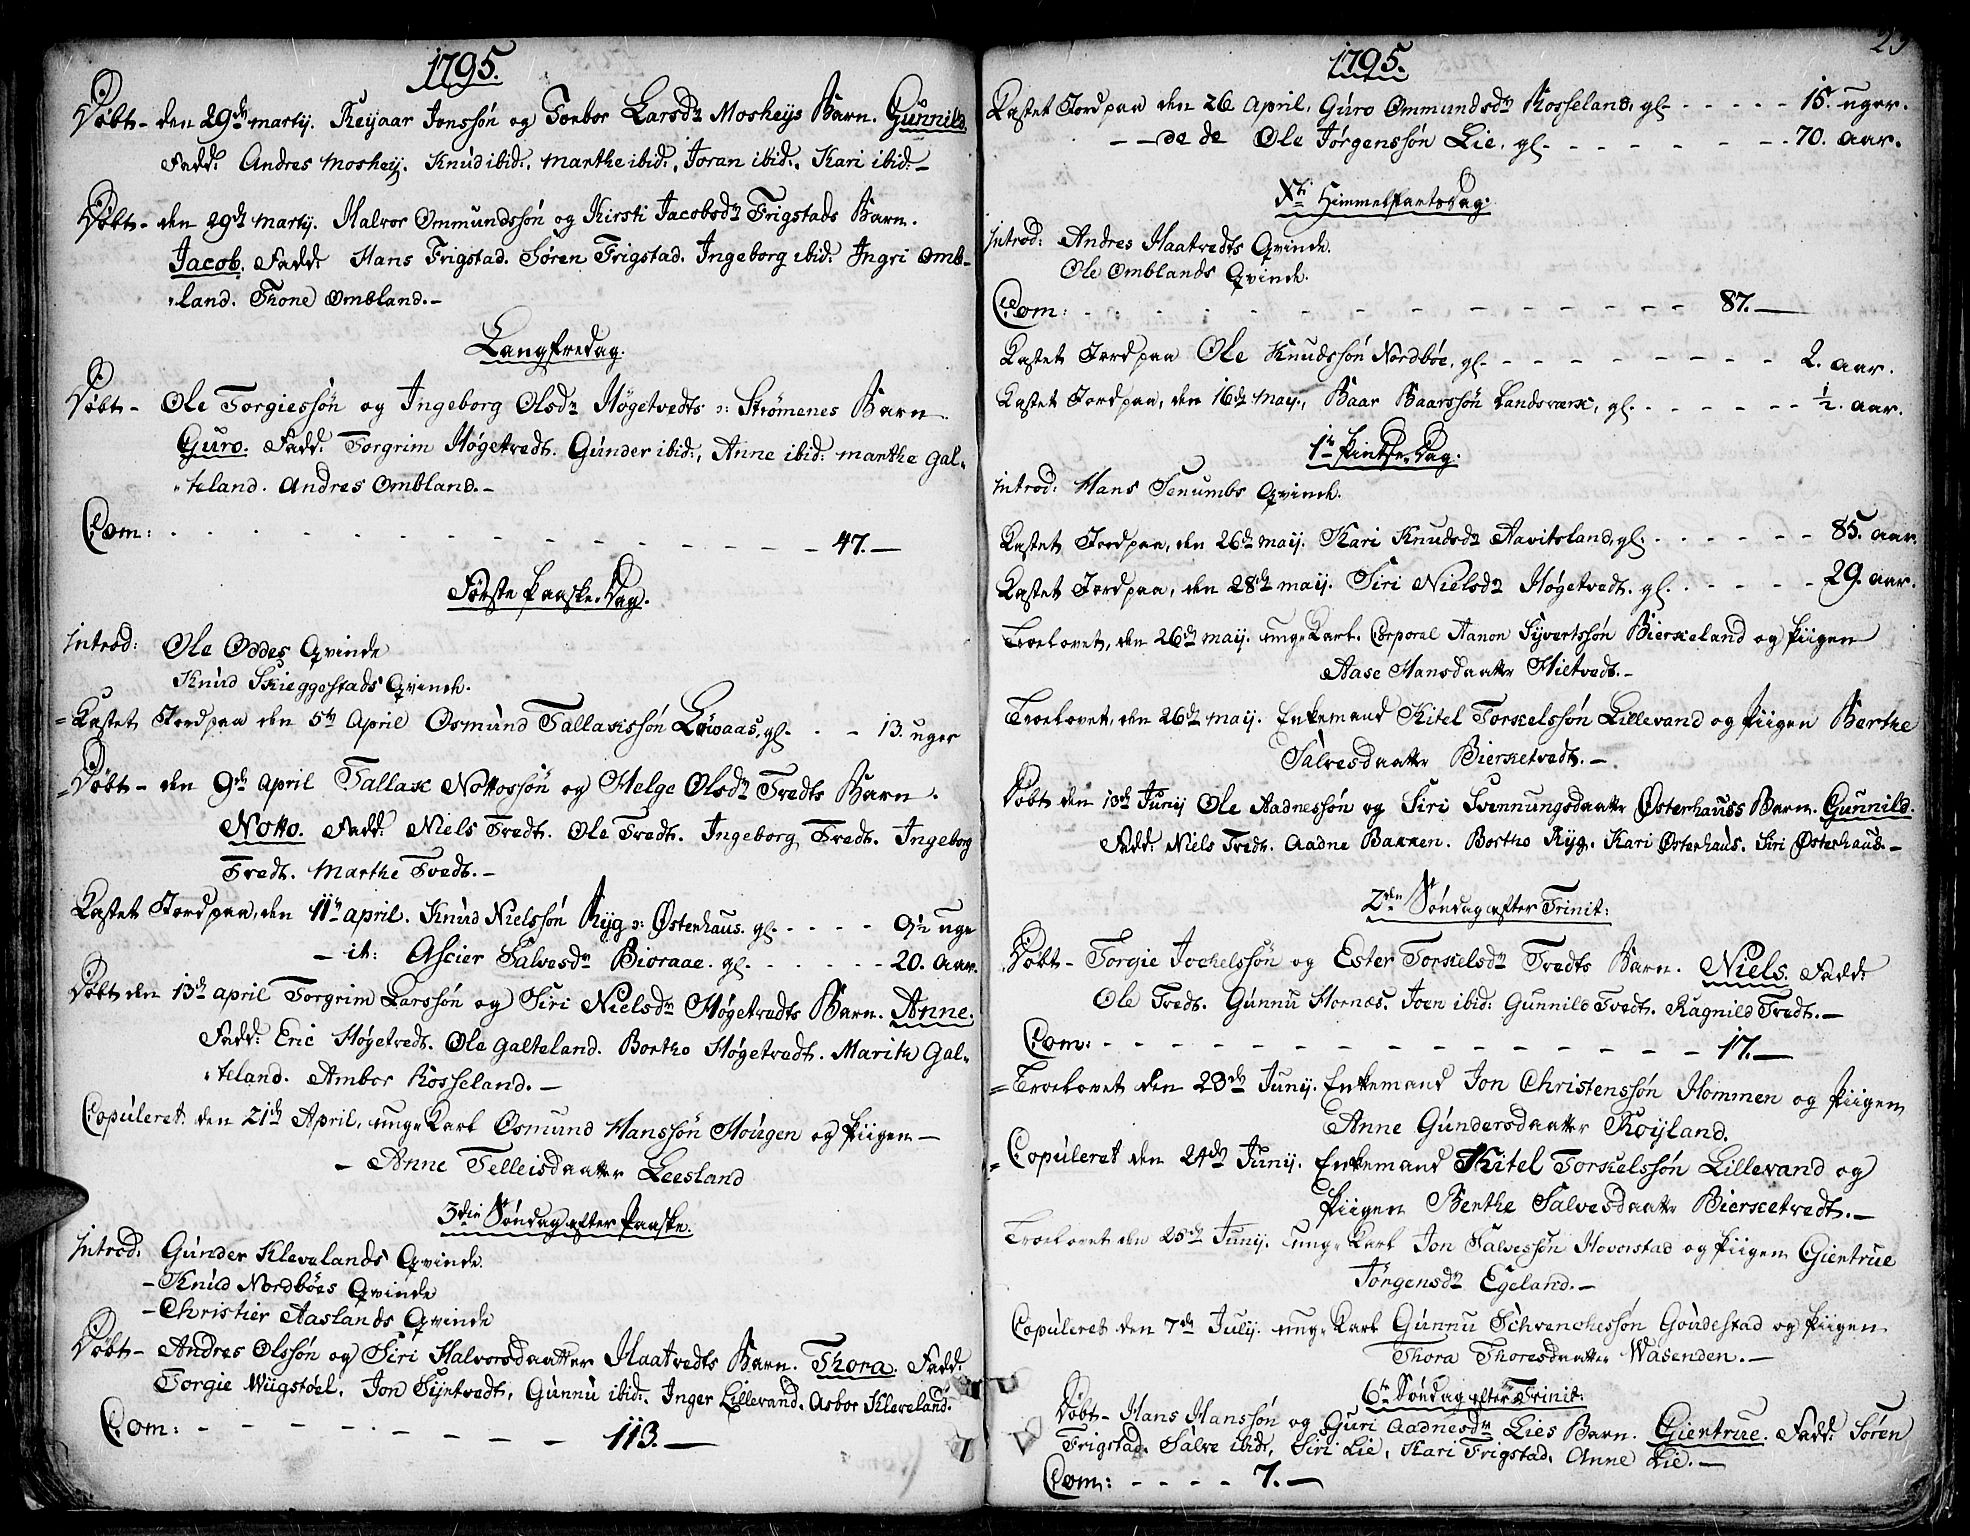 1795.
Døbt - den 29de Martij. Reijaar Jonssøn og Torbor Larsdr Mosheijs Barn. Gunnild
Fadd: Andres Moshej. Knud ibid:, Marthe ibid:, Joran ibid:, Kari ibid: -
Døbt - den 29de Martij. Halvor Ommundssøn og Kirsti Jacobsdr Frigstads Barn.
Jacob. Fadd: Hans Frigstad. Søren Frigstad. Ingeborg ibid: Ingri Omb-
"land. Thone Ombland. -
Langfredag.
Døbt - Ole Torgiessøn og Ingeborg Olsdr Høgetvedts : Strømenes Barn
Guro. Fadd: Torgrim Høgetvedt. Gunder ibid:, Anne ibid: Marthe Gal-
"teland. Andres Ombland. -
Com: - - - - - 47. -
Første Paaske-Dag.
Introd: Ole Oddes Qvinde
Knud Skieggestads Qvinde.
= Kastet Jord paa den 5te April Osmund Tallakssøn Løvaas, gl. - - 13. uger
= Døbt - den 9de April Tallax Nottossøn og Helge Olsdr Tvedts Barn.
Notto. Fadd: Niels Tvedt. Ole Tvedt. Ingeborg Tvedt. Ingeborg
Tvedt. Marthe Tvedt. -
Kastet Jord paa, den 11te April. Knud Nielssøn Ryg : Østerhaus. gl. - - - - 9½ uge
- it: Ascier Salvesdr Bioraae. gl. - - - - - 20. Aar.
Døbt den 13de April Torgrim Larssøn og Siri Nielsdr Høgetvedts Barn. Anne.
Fadd: Eric Høgetvedt. Ole Galteland. Bertho Høgetvedt. Marithe Gal-
"teland. Ambor Rosseland. -
Copuleret den 21de April, unge Karl Osmund Hanssøn Hougen og Piigen -
- Anne Telleisdaatter Leesland
3die Søndag efter Paaske.
Introd: Gunder Klevelands Qvinde.
- Knud Nordbøes Qvinde
- Christier Aaslands Qvinde
Døbt - Andres Olssøn og Siri Halvorsdaatter Haatvedts Barn. Thora. Fadd:
Torgie Wiigstøel. Jon Sijntvedt, Gunnu ibid:. Inger Lillevand. Asbor Kleveland.
Com: - - - - - 113. -
1795.
Kastet Jord paa den 26 April. Guro Ommundsdr Rosseland, gl. - - - - - 15. uger.
- - de de Ole Jørgenssøn Lie, gl. - - - - - 70. Aar.
Xti Himmelfartsdag.
Introd: Andres Haatvedts Qvinde.
Ole Omblands Qvinde.
Com: - - - - - 87. -
Kastet Jord paa Ole Knudssøn Nordbøe, gl. - - - - - 2. aar.
Kastet Jord paa, den 16de Maij, Baar Baarssøn Landsværk, gl. - - - - - ½. aar.
1te Pintse-Dag.
Introd: Hans Senumbs Qvinde.
Kastet Jord paa, den 26de Maij. Kari Knudsdr Aavitsland, gl. - - - - - 85. aar.
Kastet Jord paa, den 28de Maij. Siri Nielsdr Høgetvedt. gl. - - - - - 29. aar.
Troelovet, den 26de Maij. unge Karl. Corporal Aanon Syvertssøn Bierkeland og Piigen
Aase Hansdaatter Hietvedt. -
Troelovet, den 26de Maij. Enkemand Kitel Torkelssøn Lillevand og Piigen Berthe
Salvesdaatter Biersketvedt. -
Døbt den 13de Junij Ole Aadnessøn og Siri Svennungsdaatter Østerhauss Barn. Gunnild.
Fadd: Niels Tvedt. Aadne Bakken. Bertho Ryg. Kari Østerhaus. Siri Østerhaus. -
2den Søndag efter Trinit:
Døbt - Torgie Jockelssøn og Ester Torkelsdr Tvedts Barn. Niels. Fadd:
Ole Tvedt. Gunnu Hornæs. Joen ibid: Gunnild Tvedt. Ragnild Tvedt. -
Com: - - - - - 17. -
= Troelovet den 23de Junij. Enkemand Jon Christenssøn Hommen og Piigen
Anne Gundersdaatter Røijland.
= Copuleret den 24de Junij. Enkemand Kitel Torkelssøn Lillevand og
Piigen Berthe Salvesdaatter Biersketvedt. -
Troelovet den 25de Junij. unge Karl Jon Salvessøn Hoverstad og Piigen Giertrue
Jørgensdr Egeland. -
Copuleret den 7de Julij. unge Karl Gunnu Schvenchessøn Goudestad og Piigen
Thora Thoresdaatter Wasenden. -
6te Søndag efter Trinit:
Døbt - Hans Hanssøn og Guri Aadnesdr Lies Barn. Giertrue. Fadd: Søren
Frigstad. Salve ibid:, Siri Lie, Kari Frigstad. Anne Lie. -
Com: - - - - 7. -